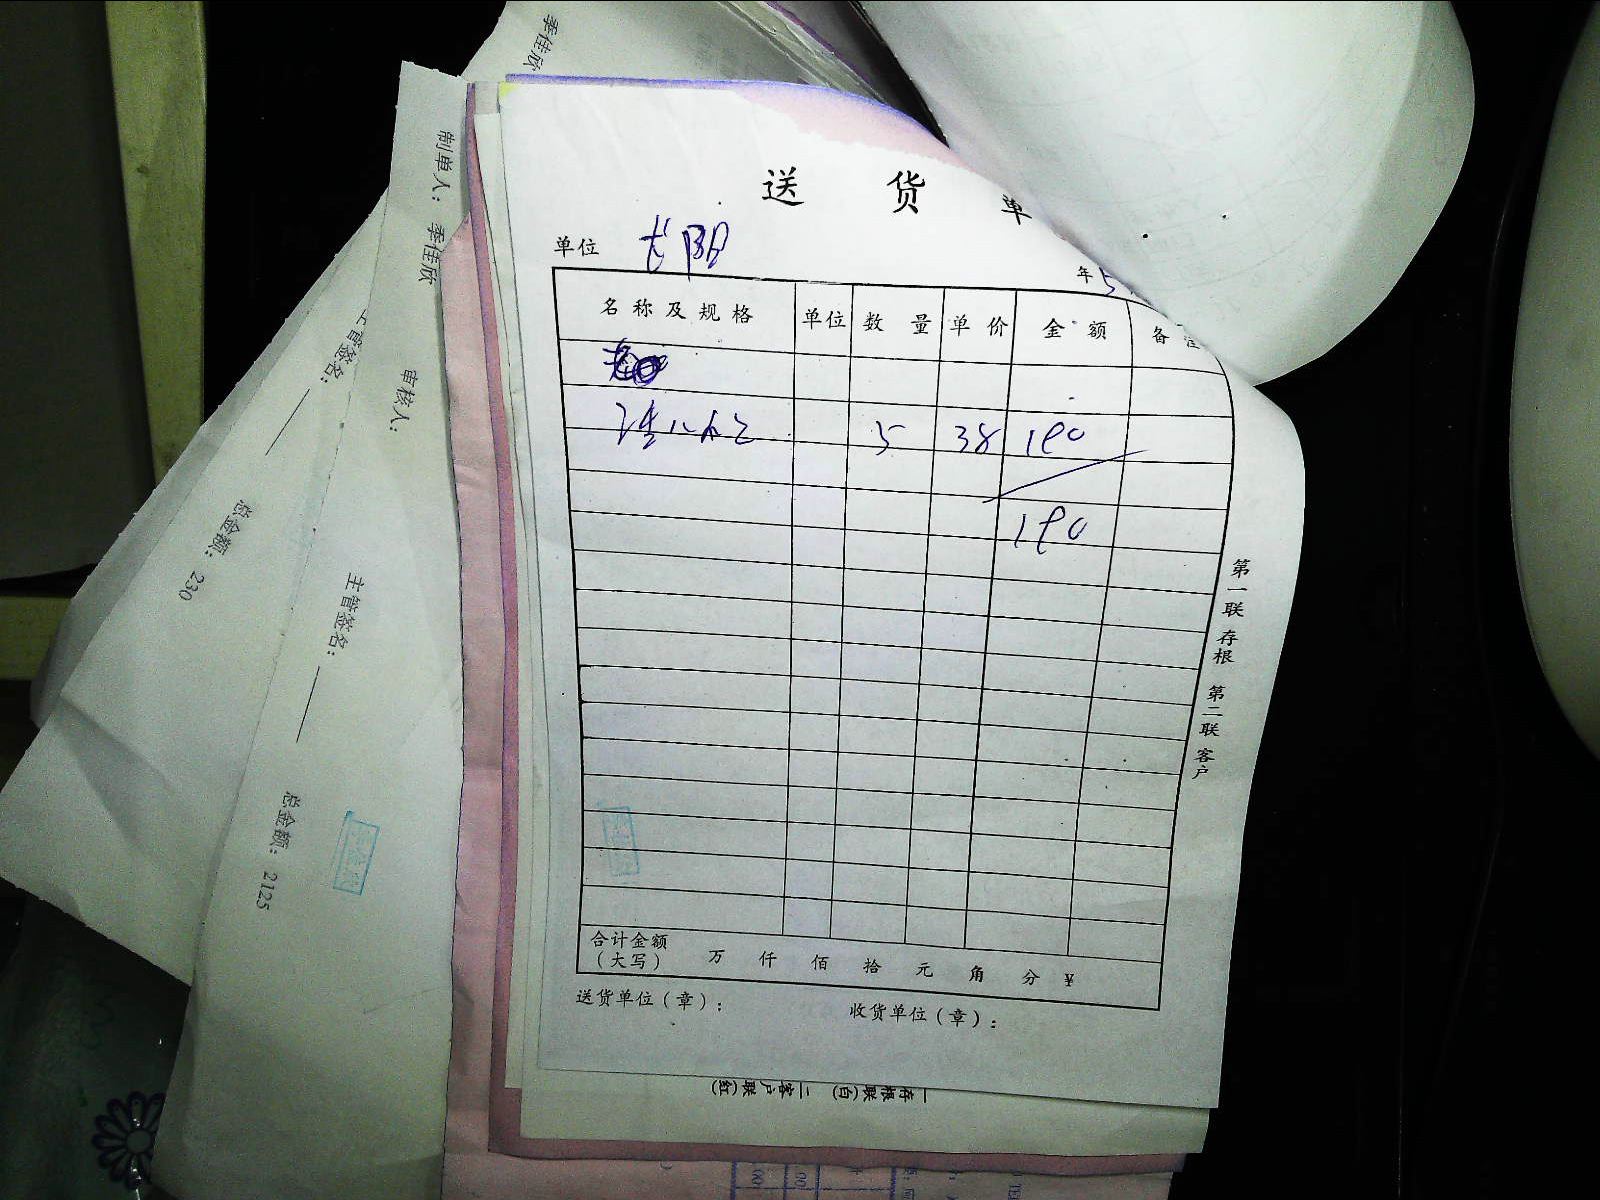 送 货 单
单位
年 5
名称及规格 单位 数量 单价 金额 备注
5 38 190
190
合计金额
（大写） 万 仟 佰 拾 元 角 分 ¥
送货单位（章）： 收货单位（章）：
第一联 存根 第二联 客户
一存根联(白) 二客户联(红)
季佳欣
制单人： 季佳欣
主管签名：
审核人：
总金额： 230
主管签名：
总金额： 2125